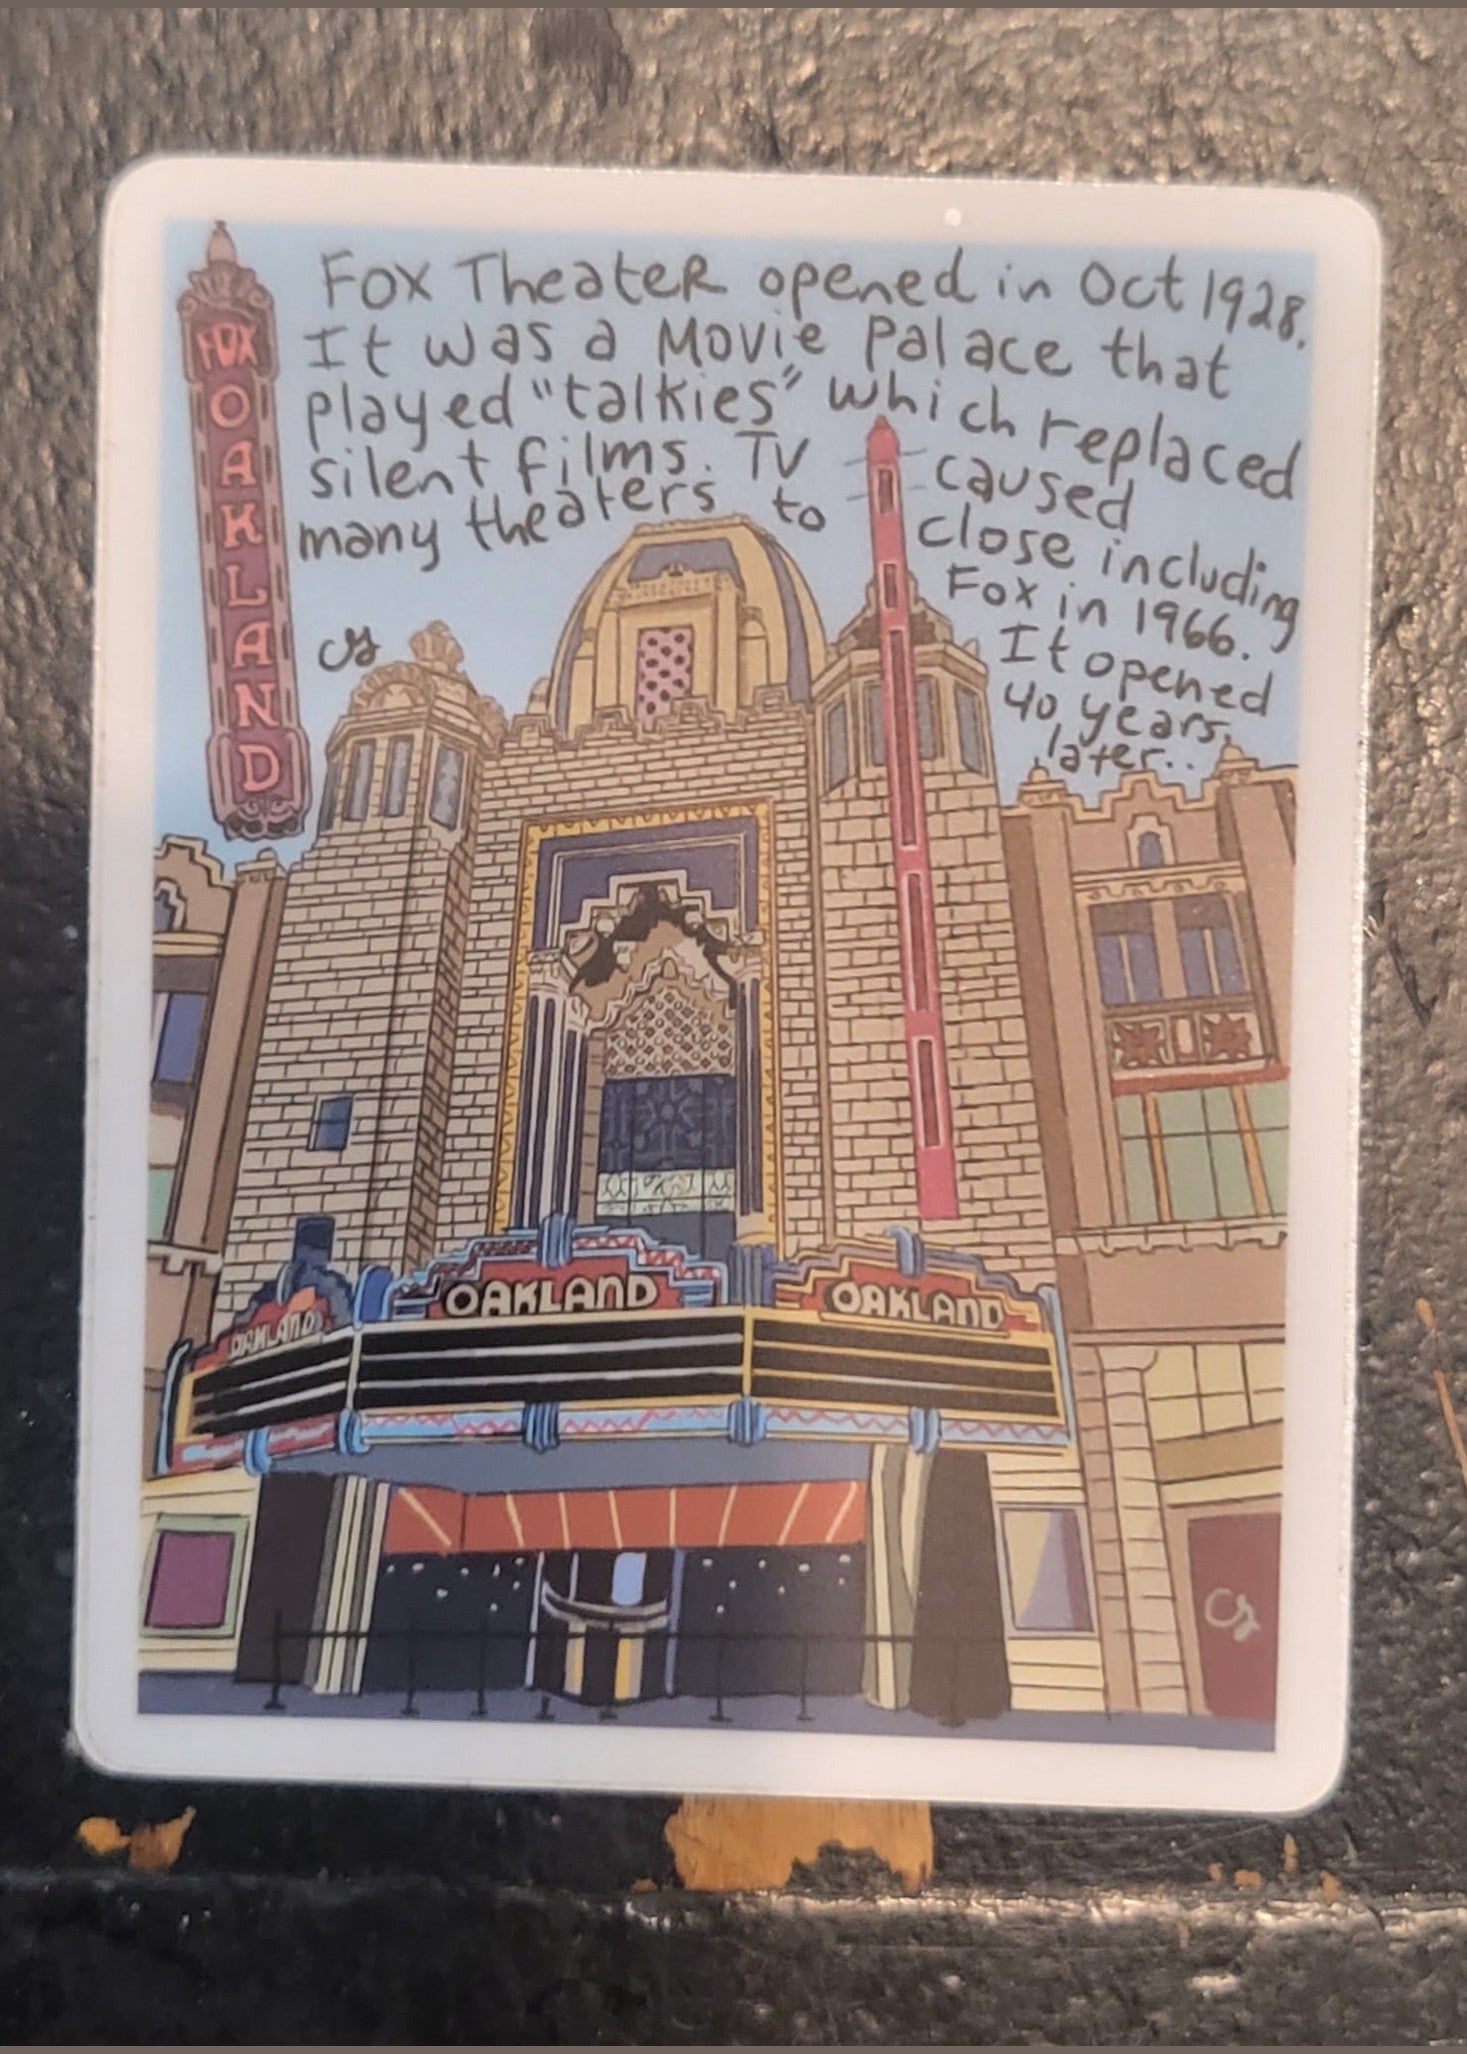 FOX TheateR opened in Oct 1928.
It was a Movie Palace that
played "talkies" which replaced
silent films. TV caused
many theaters to close including
Fox in 1966.
It opened
40 years
later..
cs
FOX
OAKLAND
OAKLAND
OAKLAND
OAKLAND
cs